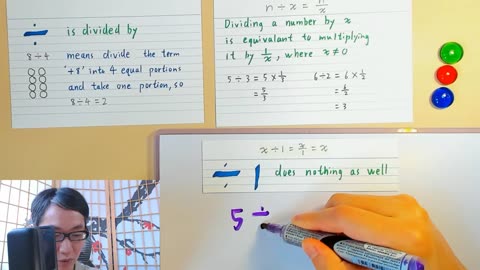 ÷ is divided by
8 ÷ 4 means divide the term
+8' into 4 equal portions
and take one portion, so
8 ÷ 4 = 2
n ÷ x = n/x
Dividing a number by x
is equivalant to multiplying
it by 1/x, where x ≠ 0
5 ÷ 3 = 5 × 1/3
= 5/3
6 ÷ 2 = 6 × 1/2
= 6/2
= 3
x ÷ 1 = x/1 = x
÷ 1 does nothing as well
5 ÷